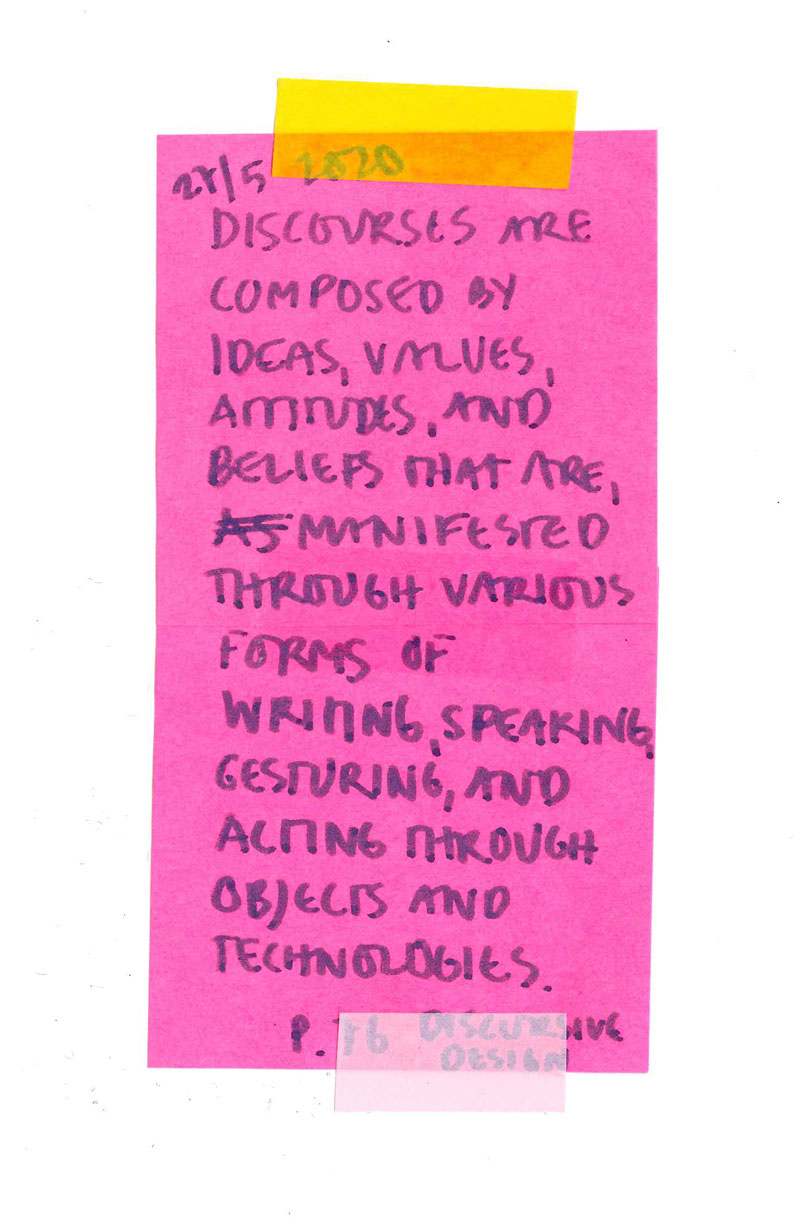 28/5 2020
DISCOURSES ARE
COMPOSED BY
IDEAS, VALUES,
ATTITUDES, AND
BELIEFS THAT ARE,
MANIFESTED
THROUGH VARIOUS
FORMS OF
WRITING, SPEAKING,
GESTURING, AND
ACTING THROUGH
OBJECTS AND
TECHNOLOGIES.
P. DISCURSIVE
DESIGN